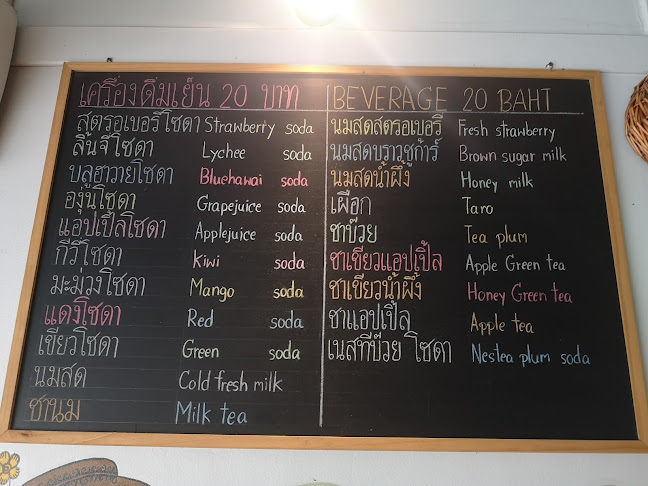 เครื่องดื่มเย็น 20 บาท
สตรอเบอรี่โซดา Strawberry soda
ลิ้นจี่โซดา Lychee soda
บลูฮาวายโซดา Bluehawai soda
องุ่นโซดา Grapejuice soda
แอปเปิ้ลโซดา Applejuice soda
กีวี่โซดา Kiwi soda
มะม่วงโซดา Mango soda
แดงโซดา Red soda
เขียวโซดา Green soda
นมสด Cold fresh milk
ชานม Milk tea
BEVERAGE 20 BAHT
นมสดสตรอเบอรี่ Fresh strawberry
นมสดบราวชูก้าร์ Brown sugar milk
นมสดน้ำผึ้ง Honey milk
เผือก Taro
ชาบ๊วย Tea plum
ชาเขียวแอปเปิ้ล Apple Green tea
ชาเขียวน้ำผึ้ง Honey Green tea
ชาแอปเปิ้ล Apple tea
เนสทีบ๊วย โซดา Nestea plum soda